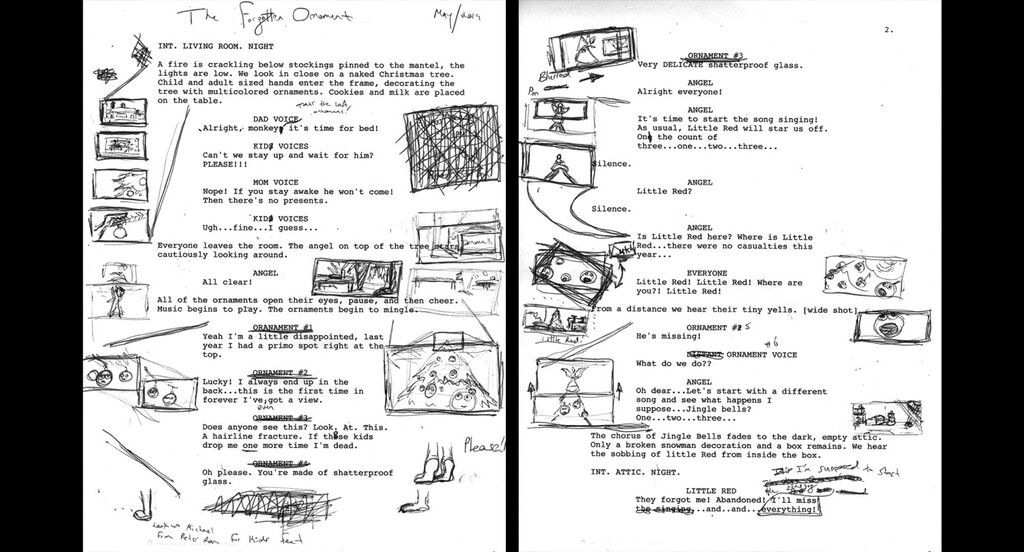 The Forgotten Ornament
May/2019
INT. LIVING ROOM. NIGHT
A fire is crackling below stockings pinned to the mantel, the
lights are low. We look in close on a naked Christmas tree.
Child and adult sized hands enter the frame, decorating the
tree with multicolored ornaments. Cookies and milk are placed
on the table.
DAD VOICE
Alright, monkeys it's time for bed!
KIDS VOICES
Can't we stay up and wait for him?
PLEASE!!!
MOM VOICE
Nope! If you stay awake he won't come!
Then there's no presents.
KIDS VOICES
Ugh...fine...I guess...
Everyone leaves the room. The angel on top of the tree stars
cautiously looking around.
ANGEL
All clear!
All of the ornaments open their eyes, pause, and then cheer.
Music begins to play. The ornaments begin to mingle.
ORANAMENT #1
Yeah I'm a little disappointed, last
year I had a primo spot right at the
top.
ORNAMENT #2
Lucky! I always end up in the
back...this is the first time in
forever I've got a view.
even
ORNAMENT #3
Does anyone see this? Look. At. This.
A hairline fracture. If those kids
drop me one more time I'm dead.
Please!
ORNAMENT #4
Oh please. You're made of shatterproof
glass.
Michael
From Peter Pan For Kids Feet
2.
ORNAMENT #3
Very DELICATE shatterproof glass.
Blurred
Pan
ANGEL
Alright everyone!
ANGEL
It's time to start the song singing!
As usual, Little Red will star us off.
On the count of
three...one...two...three...
Silence.
ANGEL
Little Red?
Silence.
ANGEL
Is Little Red here? Where is Little
Red...there were no casualties this
year...
EVERYONE
Little Red! Little Red! Where are
you?! Little Red!
From a distance we hear their tiny yells. [wide shot]
Little Red!
ORNAMENT #5
He's missing!
#6
DISTANT ORNAMENT VOICE
What do we do??
ANGEL
Oh dear...Let's start with a different
song and see what happens I
suppose...Jingle bells?
One...two...three...
The chorus of Jingle Bells fades to the dark, empty attic.
Only a broken snowman decoration and a box remains. We hear
the sobbing of little Red from inside the box.
INT. ATTIC. NIGHT.
I'm supposed to start
the
LITTLE RED
They forgot me! Abandoned! I'll miss
the singing...and...and...everything!